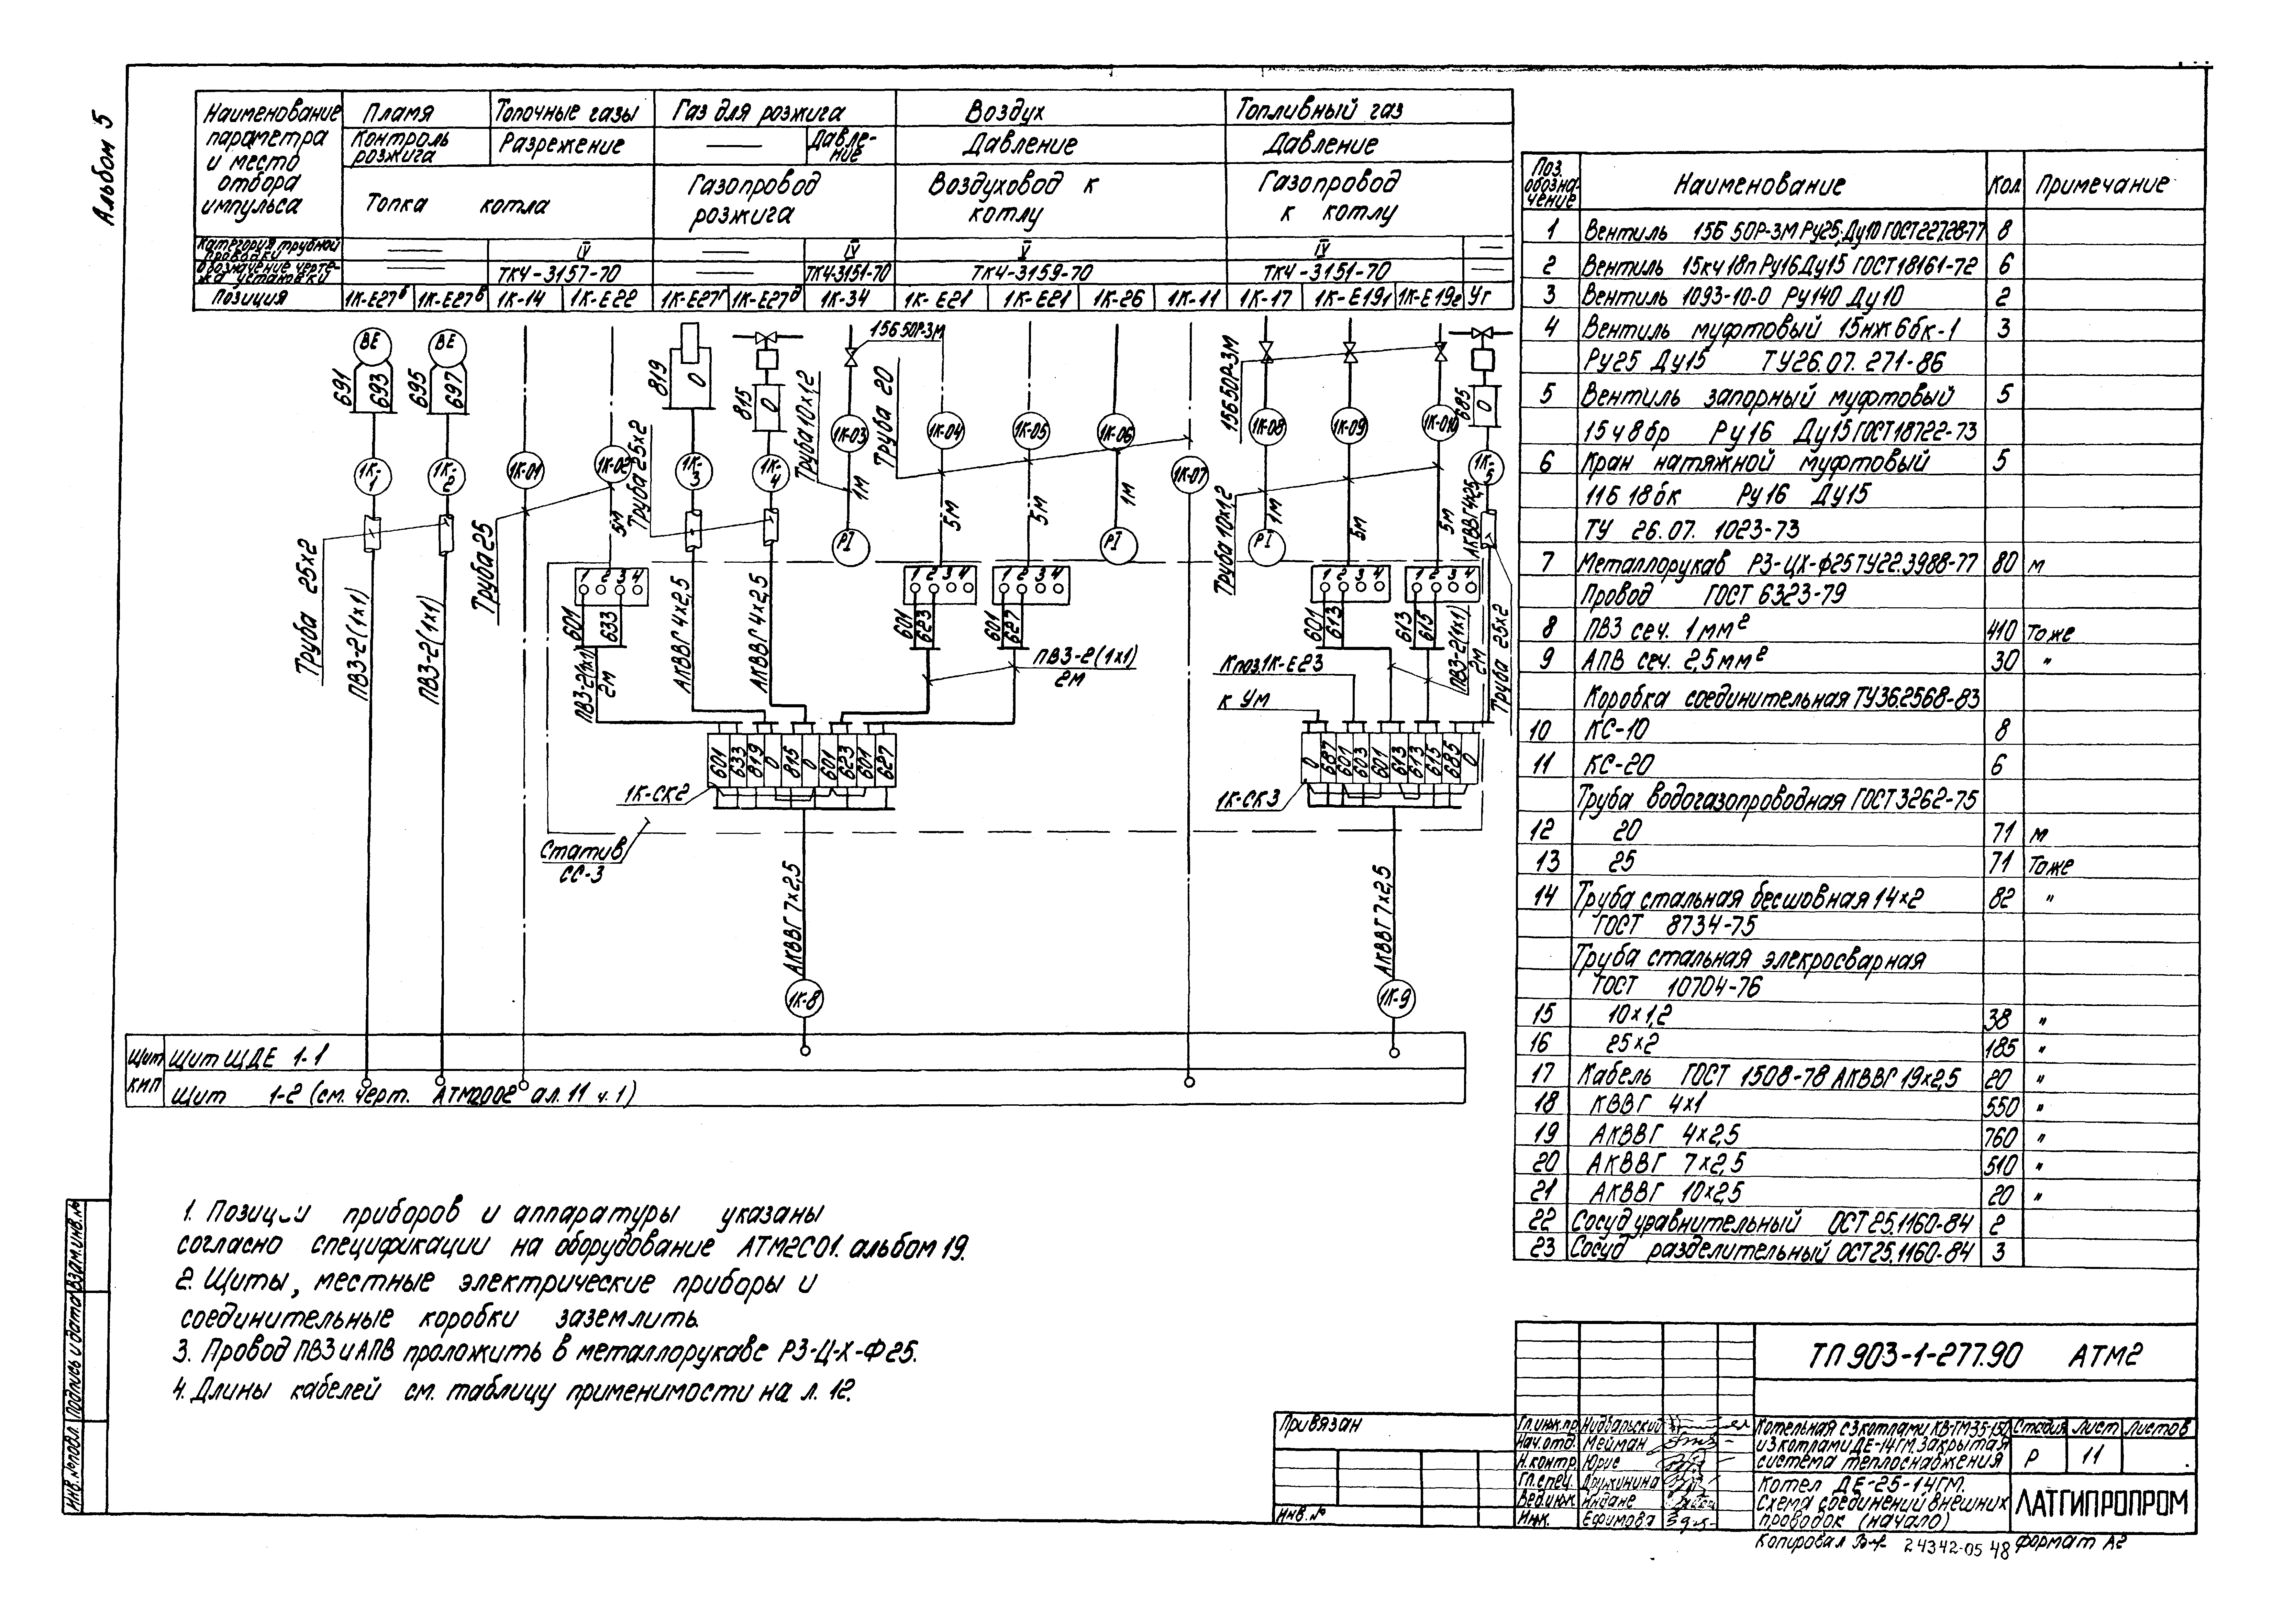 Альбом 5
Наименование параметра и место отбора импульса
Пламя
Топочные газы
Газ для розжига
Воздух
Топливный газ
Контроль розжига
Разрежение
Давление
Давление
Давление
Топка котла
Газопровод розжига
Воздуховод к котлу
Газопровод к котлу
Категория трубной проводки
IV
IV
V
IV
Обозначение чертежа установки
ТК4-3157-70
ТК4-3151-70
ТК4-3159-70
ТК4-3151-70
Позиция
1К-Е27б
1К-Е27в
1К-14
1К-Е22
1К-Е27г
1К-Е27д
1К-34
1К-Е21
1К-Е21
1К-26
1К-11
1К-17
1К-Е19₁
1К-Е19₂
Уг
ВЕ
ВЕ
691
693
695
697
819
0
815
0
15Б50Р-3М
15Б50Р-3М
685
0
1К-1
1К-2
1К-01
1К-02
1К-3
1К-4
1К-03
1К-04
1К-05
1К-06
1К-07
1К-08
1К-09
1К-010
1К-5
Труба 25х2
Труба 25
Труба 25х2
Труба 10х1,2
Труба 20
Труба 10х1,2
Труба 25х2
5м
1м
5м
5м
1м
1м
5м
5м
АКВВГ 4х2,5
PI
PI
PI
ПВ3-2(1х1)
ПВ3-2(1х1)
1 2 3 4
1 2 3 4
1 2 3 4
1 2 3 4
1 2 3 4
601
633
601
623
601
627
601
613
613
615
АКВВГ 4х2,5
АКВВГ 4х2,5
ПВ3-2(1х1)
2м
ПВ3-2(1х1)
2м
ПВ3-2(1х1)
2м
К поз.1К-Е23
к Ум
601 633 819 0 815 0 601 623 601 627
0 687 601 603 601 613 613 615 685 0
1К-СК2
1К-СК3
Статив СС-3
АКВВГ 7х2,5
АКВВГ 7х2,5
1К-8
1К-9
Щит КИП
Щит ЩДЕ 1-1
Щит 1-2 (см. черт. АТМ2002 ал. 11 ч. 1)
1. Позиции приборов и аппаратуры указаны
согласно спецификации на оборудование АТМ2С01. альбом 19.
2. Щиты, местные электрические приборы и
соединительные коробки заземлить.
3. Провод ПВ3 и АПВ проложить в металлорукаве Р3-Ц-Х-Ф25.
4. Длины кабелей см. таблицу применимости на л. 12.
Поз. обозначение
Наименование
Кол
Примечание
1 Вентиль 15Б 50Р-3М Ру25; Ду10 ГОСТ 22728-77 8
2 Вентиль 15кч 18п Ру16 Ду15 ГОСТ 18161-72 6
3 Вентиль 1093-10-0 Ру140 Ду10 2
4 Вентиль муфтовый 15нж 6бк-1 3
Ру25 Ду15 ТУ26.07. 271-86
5 Вентиль запорный муфтовый 5
15ч 8бр Ру16 Ду15 ГОСТ 18722-73
6 Кран натяжной муфтовый 5
11Б 18бк Ру16 Ду15
ТУ 26.07. 1023-73
7 Металлорукав Р3-ЦХ-Ф25 ТУ22.3988-77 80 м
Провод ГОСТ 6323-79
8 ПВ3 сеч. 1мм² 410 Тоже
9 АПВ сеч. 2,5мм² 30 "
Коробка соединительная ТУ36.2568-83
10 КС-10 8
11 КС-20 6
Труба водогазопроводная ГОСТ 3262-75
12 20 71 м
13 25 71 Тоже
14 Труба стальная бесшовная 14х2 82 "
ГОСТ 8734-75
Труба стальная элекросварная
ГОСТ 10704-76
15 10х1,2 38 "
16 25х2 185 "
17 Кабель ГОСТ 1508-78 АКВВГ 19х2,5 20 "
18 КВВГ 4х1 550 "
19 АКВВГ 4х2,5 760 "
20 АКВВГ 7х2,5 510 "
21 АКВВГ 10х2,5 20 "
22 Сосуд уравнительный ОСТ 25.1160-84 2
23 Сосуд разделительный ОСТ 25.1160-84 3
ТП 903-1-277.90 АТМ2
Привязан
Инв. №
Гл.инж.пр.
Нач.отд. Мейман
Н.контр. Юрис
Гл.спец. Дружинина
Вед.инж. Индане
Инж. Ефимова
Котельная с 3 котлами КВ-ГМ-35-150
и 3 котлами ДЕ-14ГМ. Закрытая
система теплоснабжения
Стадия Лист Листов
Р 11
Котел ДЕ-25-14ГМ.
Схема соединений внешних
проводок (начало)
ЛАТГИПРОПРОМ
Копировал
24342-05 48
Формат А2
Инв. № подл. Подпись и дата Взам.инв.№